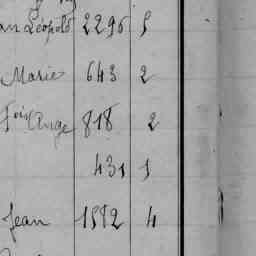 an Léopold 2296 5
Marie 643 2
Fois Ange 818 2
431 1
Jean 1582 4